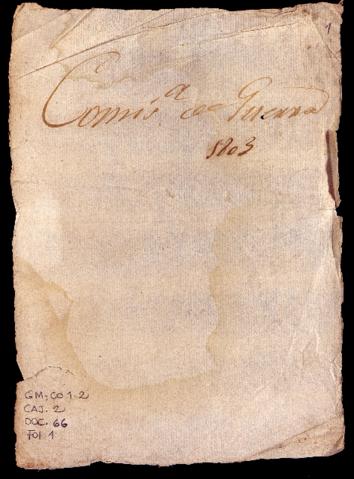 1
Comis.ª de Guerra
1803
GM-CO 1-2
CAJ. 2
DOC. 66
FOL 1